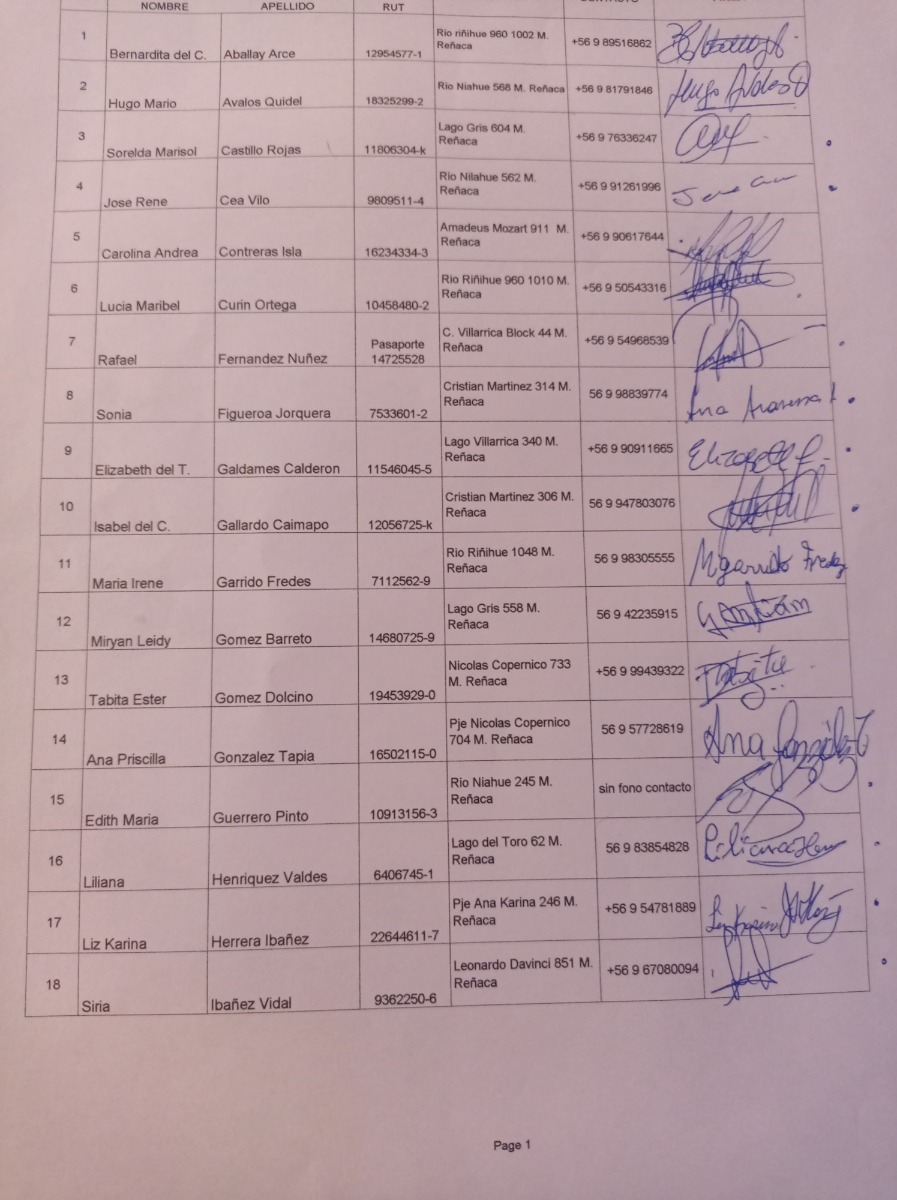 NOMBRE APELLIDO RUT
1 Bernardita del C. Aballay Arce 12954577-1 Rio riñihue 960 1002 M. Reñaca +56 9 89516862
2 Hugo Mario Avalos Quidel 18325299-2 Rio Niahue 568 M. Reñaca +56 9 81791846 Hugo Avalos Q
3 Sorelda Marisol Castillo Rojas 11806304-k Lago Gris 604 M. Reñaca +56 9 76336247
4 Jose Rene Cea Vilo 9809511-4 Rio Nilahue 562 M. Reñaca +56 9 91261996 Jose Cea
5 Carolina Andrea Contreras Isla 16234334-3 Amadeus Mozart 911 M. Reñaca +56 9 90617644
6 Lucia Maribel Curin Ortega 10458480-2 Rio Riñihue 960 1010 M. Reñaca +56 9 50543316
7 Rafael Fernandez Nuñez Pasaporte 14725528 C. Villarrica Block 44 M. Reñaca +56 9 54968539
8 Sonia Figueroa Jorquera 7533601-2 Cristian Martinez 314 M. Reñaca 56 9 98839774 Ana Aravena
9 Elizabeth del T. Galdames Calderon 11546045-5 Lago Villarrica 340 M. Reñaca +56 9 90911665 Elizabeth G.
10 Isabel del C. Gallardo Caimapo 12056725-k Cristian Martinez 306 M. Reñaca 56 9 947803076
11 Maria Irene Garrido Fredes 7112562-9 Rio Riñihue 1048 M. Reñaca 56 9 98305555 M garrido Fredes
12 Miryan Leidy Gomez Barreto 14680725-9 Lago Gris 558 M. Reñaca 56 9 42235915
13 Tabita Ester Gomez Dolcino 19453929-0 Nicolas Copernico 733 M. Reñaca +56 9 99439322 Tabita
14 Ana Priscilla Gonzalez Tapia 16502115-0 Pje Nicolas Copernico 704 M. Reñaca 56 9 57728619 Ana González T
15 Edith Maria Guerrero Pinto 10913156-3 Rio Niahue 245 M. Reñaca sin fono contacto
16 Liliana Henriquez Valdes 6406745-1 Lago del Toro 62 M. Reñaca 56 9 83854828 Liliana Hen
17 Liz Karina Herrera Ibañez 22644611-7 Pje Ana Karina 246 M. Reñaca +56 9 54781889 Liz Karina
18 Siria Ibañez Vidal 9362250-6 Leonardo Davinci 851 M. Reñaca +56 9 67080094
Page 1